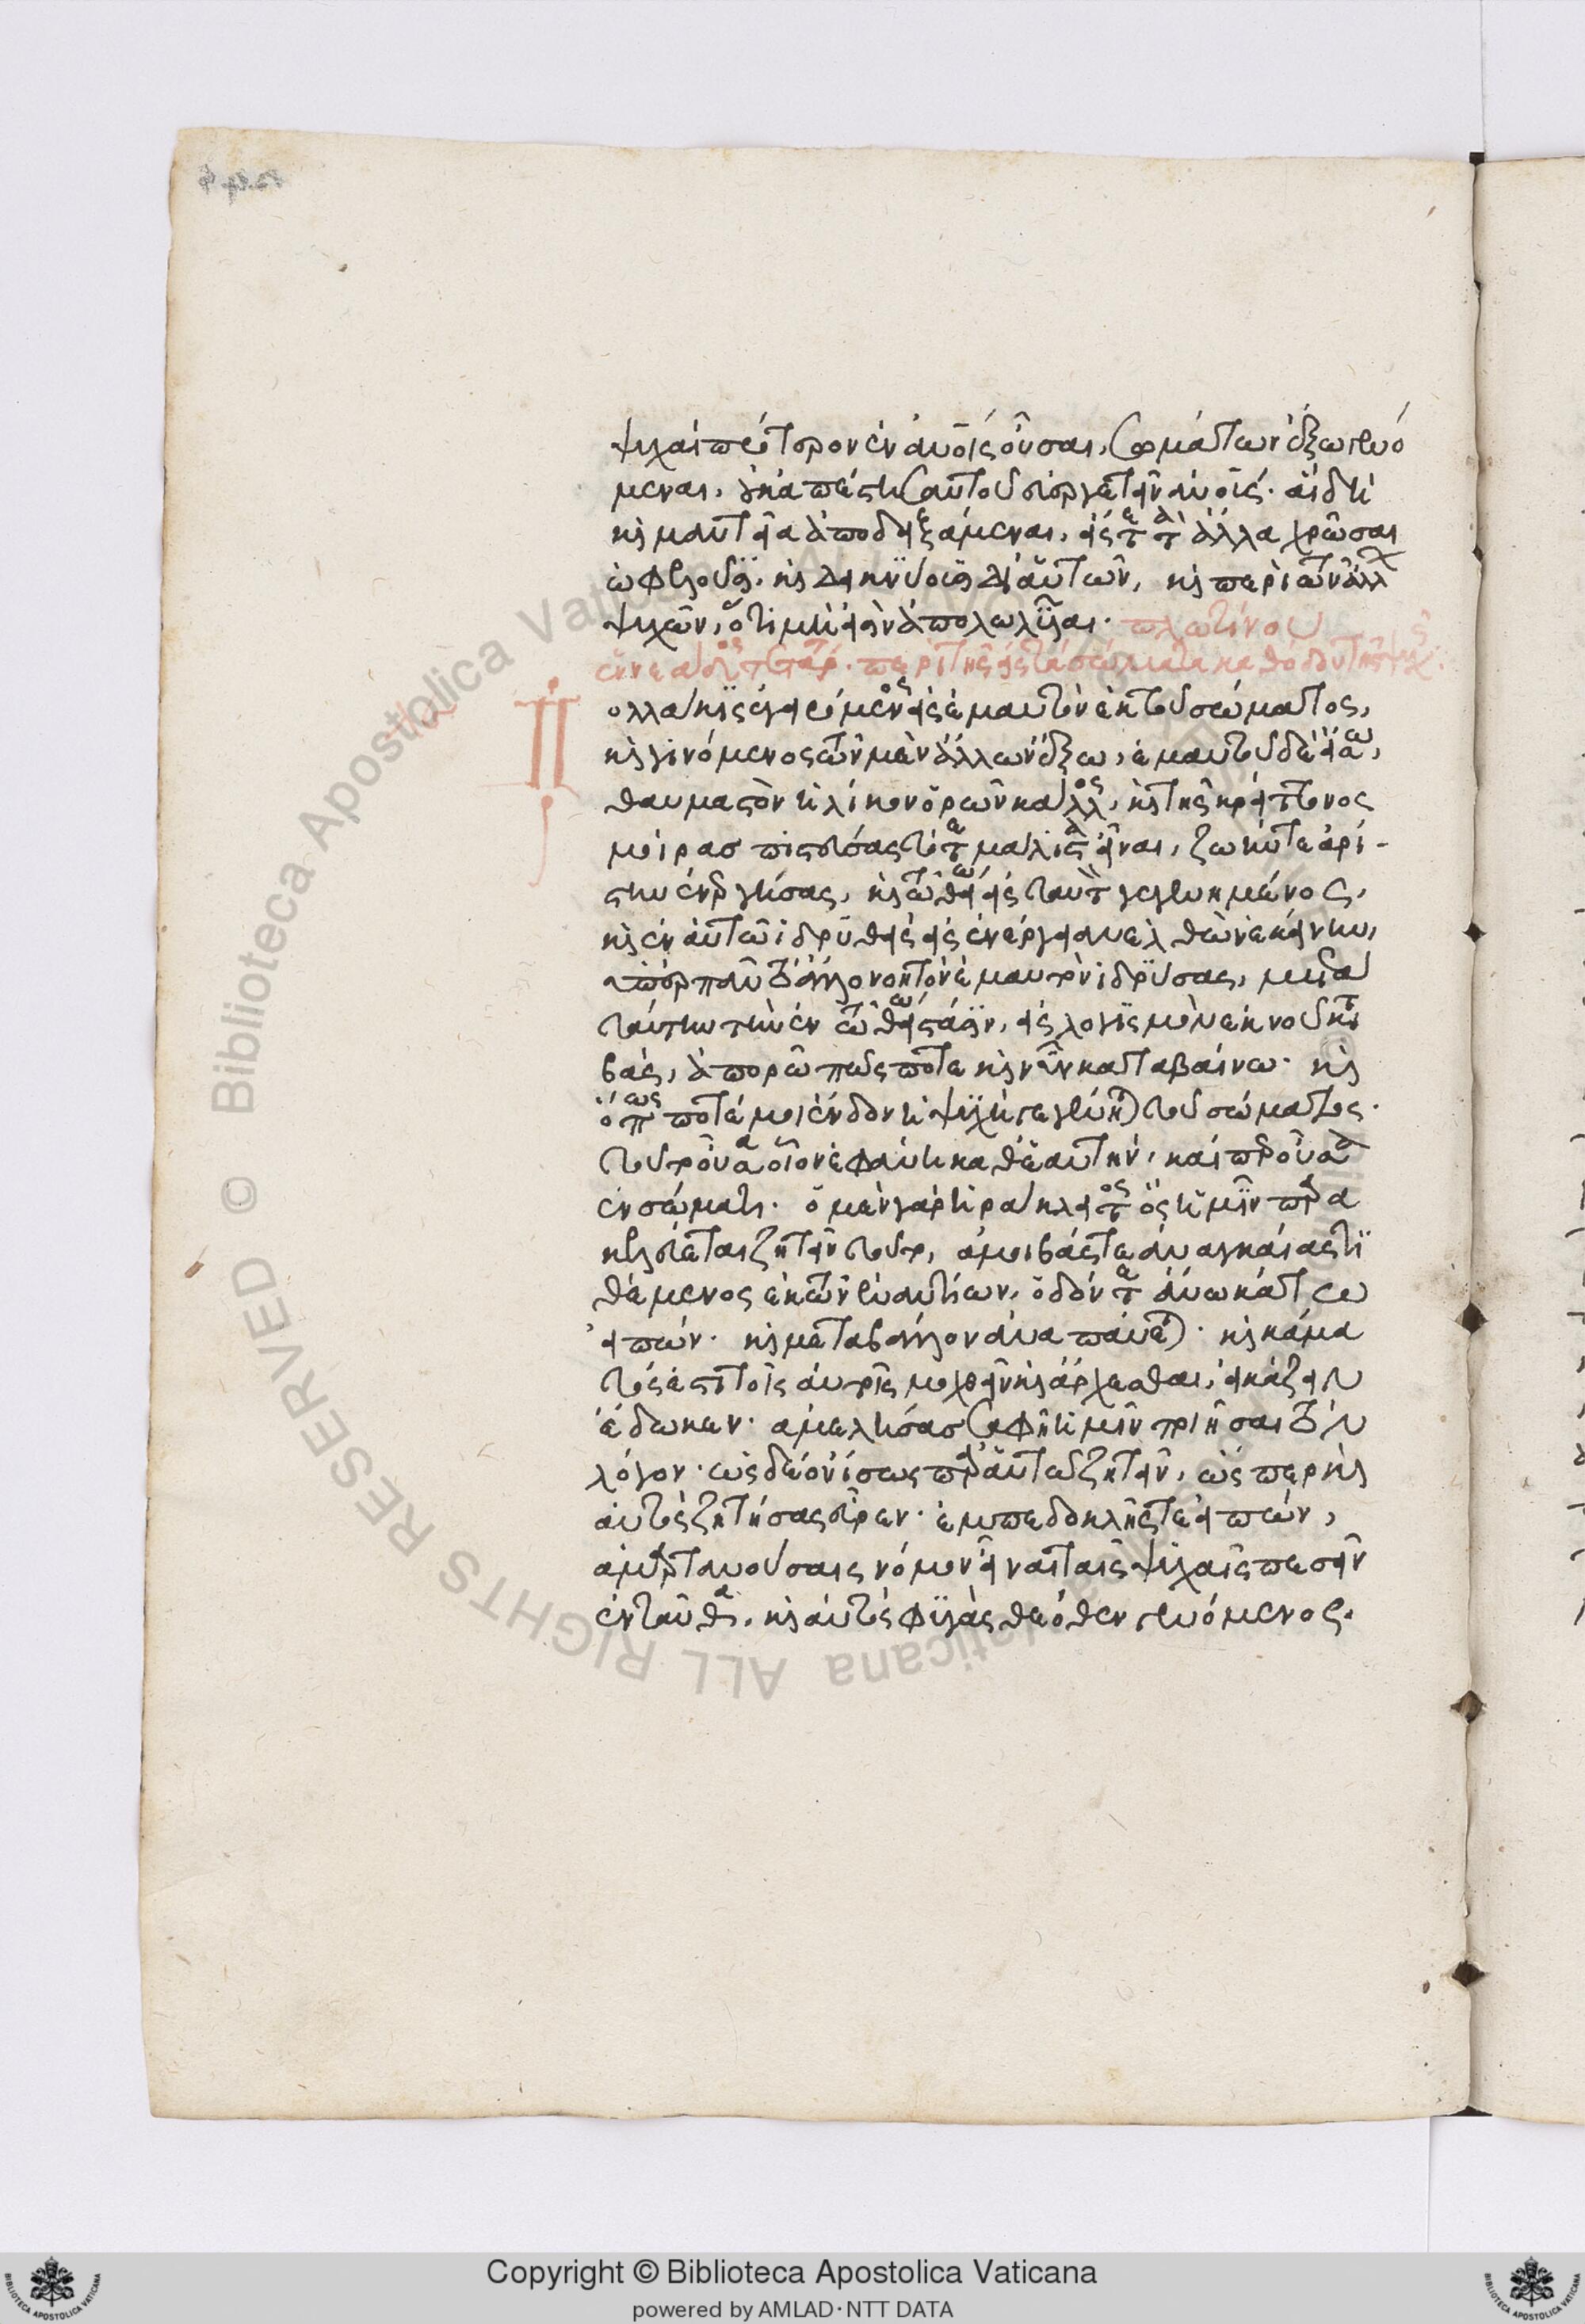 ψυχαὶ πρότερον ἐν ἀνθρώποις οὖσαι, σωμάτων ἔξω γενό
μεναι, οὐκ ἀπέστησαν τοῦ εὐεργετεῖν ἀνθρώπους· αἳ δὴ
καὶ μαντεῖα ἀποδειξάμεναι, εἴς τε τὰ ἄλλα χρῶσαι
ὠφελοῦσι, καὶ δεικνύουσι δι' αὑτῶν, καὶ περὶ τῶν ἄλλων
ψυχῶν, ὅτι μή εἰσιν ἀπολωλυῖαι· πλωτίνου
ἐννεάδος τετάρτης· περὶ τῆς εἰς τὰ σώματα καθόδου τῆς ψυχῆς.
Πολλάκις ἐγειρόμενος εἰς ἐμαυτὸν ἐκ τοῦ σώματος,
καὶ γινόμενος τῶν μὲν ἄλλων ἔξω, ἐμαυτοῦ δὲ εἴσω,
θαυμαστὸν ἡλίκον ὁρῶν κάλλος, καὶ τῆς κρείττονος
μοίρας πιστεύσας τότε μάλιστα εἶναι, ζωήν τε ἀρί-
στην ἐνεργήσας, καὶ τῷ θείῳ εἰς ταὐτὸν γεγενημένος,
καὶ ἐν αὐτῷ ἱδρυθεὶς εἰς ἐνέργειαν ἐλθὼν ἐκείνην,
ὑπὲρ πᾶν τὸ ἄλλο νοητὸν ἐμαυτὸν ἱδρύσας, μετὰ
ταύτην τὴν ἐν τῷ θείῳ στάσιν, εἰς λογισμὸν ἐκ νοῦ κατα
βὰς, ἀπορῶ πῶς ποτε καὶ νῦν καταβαίνω· καὶ
ὅπως ποτέ μοι ἔνδον ἡ ψυχὴ γεγένηται τοῦ σώματος·
τοῦτο οὖσα οἷον ἐφάνη καθ' ἑαυτὴν, καίπερ οὖσα
ἐν σώματι. ὁ μὲν γὰρ ἡράκλειτος ὃς ἡμῖν παρα
κελεύεται ζητεῖν τοῦτο, ἀμοιβάς τε ἀναγκαίας τι
θέμενος ἐκ τῶν ἐναντίων, ὁδόν τε ἄνω κάτω
εἰπὼν· καὶ μεταβάλλον ἀναπαύεται· καὶ κάμα
τός ἐστι τοῖς αὐτοῖς μοχθεῖν καὶ ἄρχεσθαι, εἰκάζειν
ἔδωκεν· ἀμελήσας σαφῆ ἡμῖν ποιῆσαι τὸν
λόγον· ὡς δέον ἴσως παρ' αὑτῷ ζητεῖν, ὥσπερ καὶ
αὐτὸς ζητήσας εὗρεν· ἐμπεδοκλῆς τε εἰπὼν,
ἁμαρτανούσαις νόμον εἶναι ταῖς ψυχαῖς πεσεῖν
ἐνταῦθα, καὶ αὐτὸς φυγὰς θεόθεν γενόμενος.
Copyright © Biblioteca Apostolica Vaticana
powered by AMLAD·NTT DATA